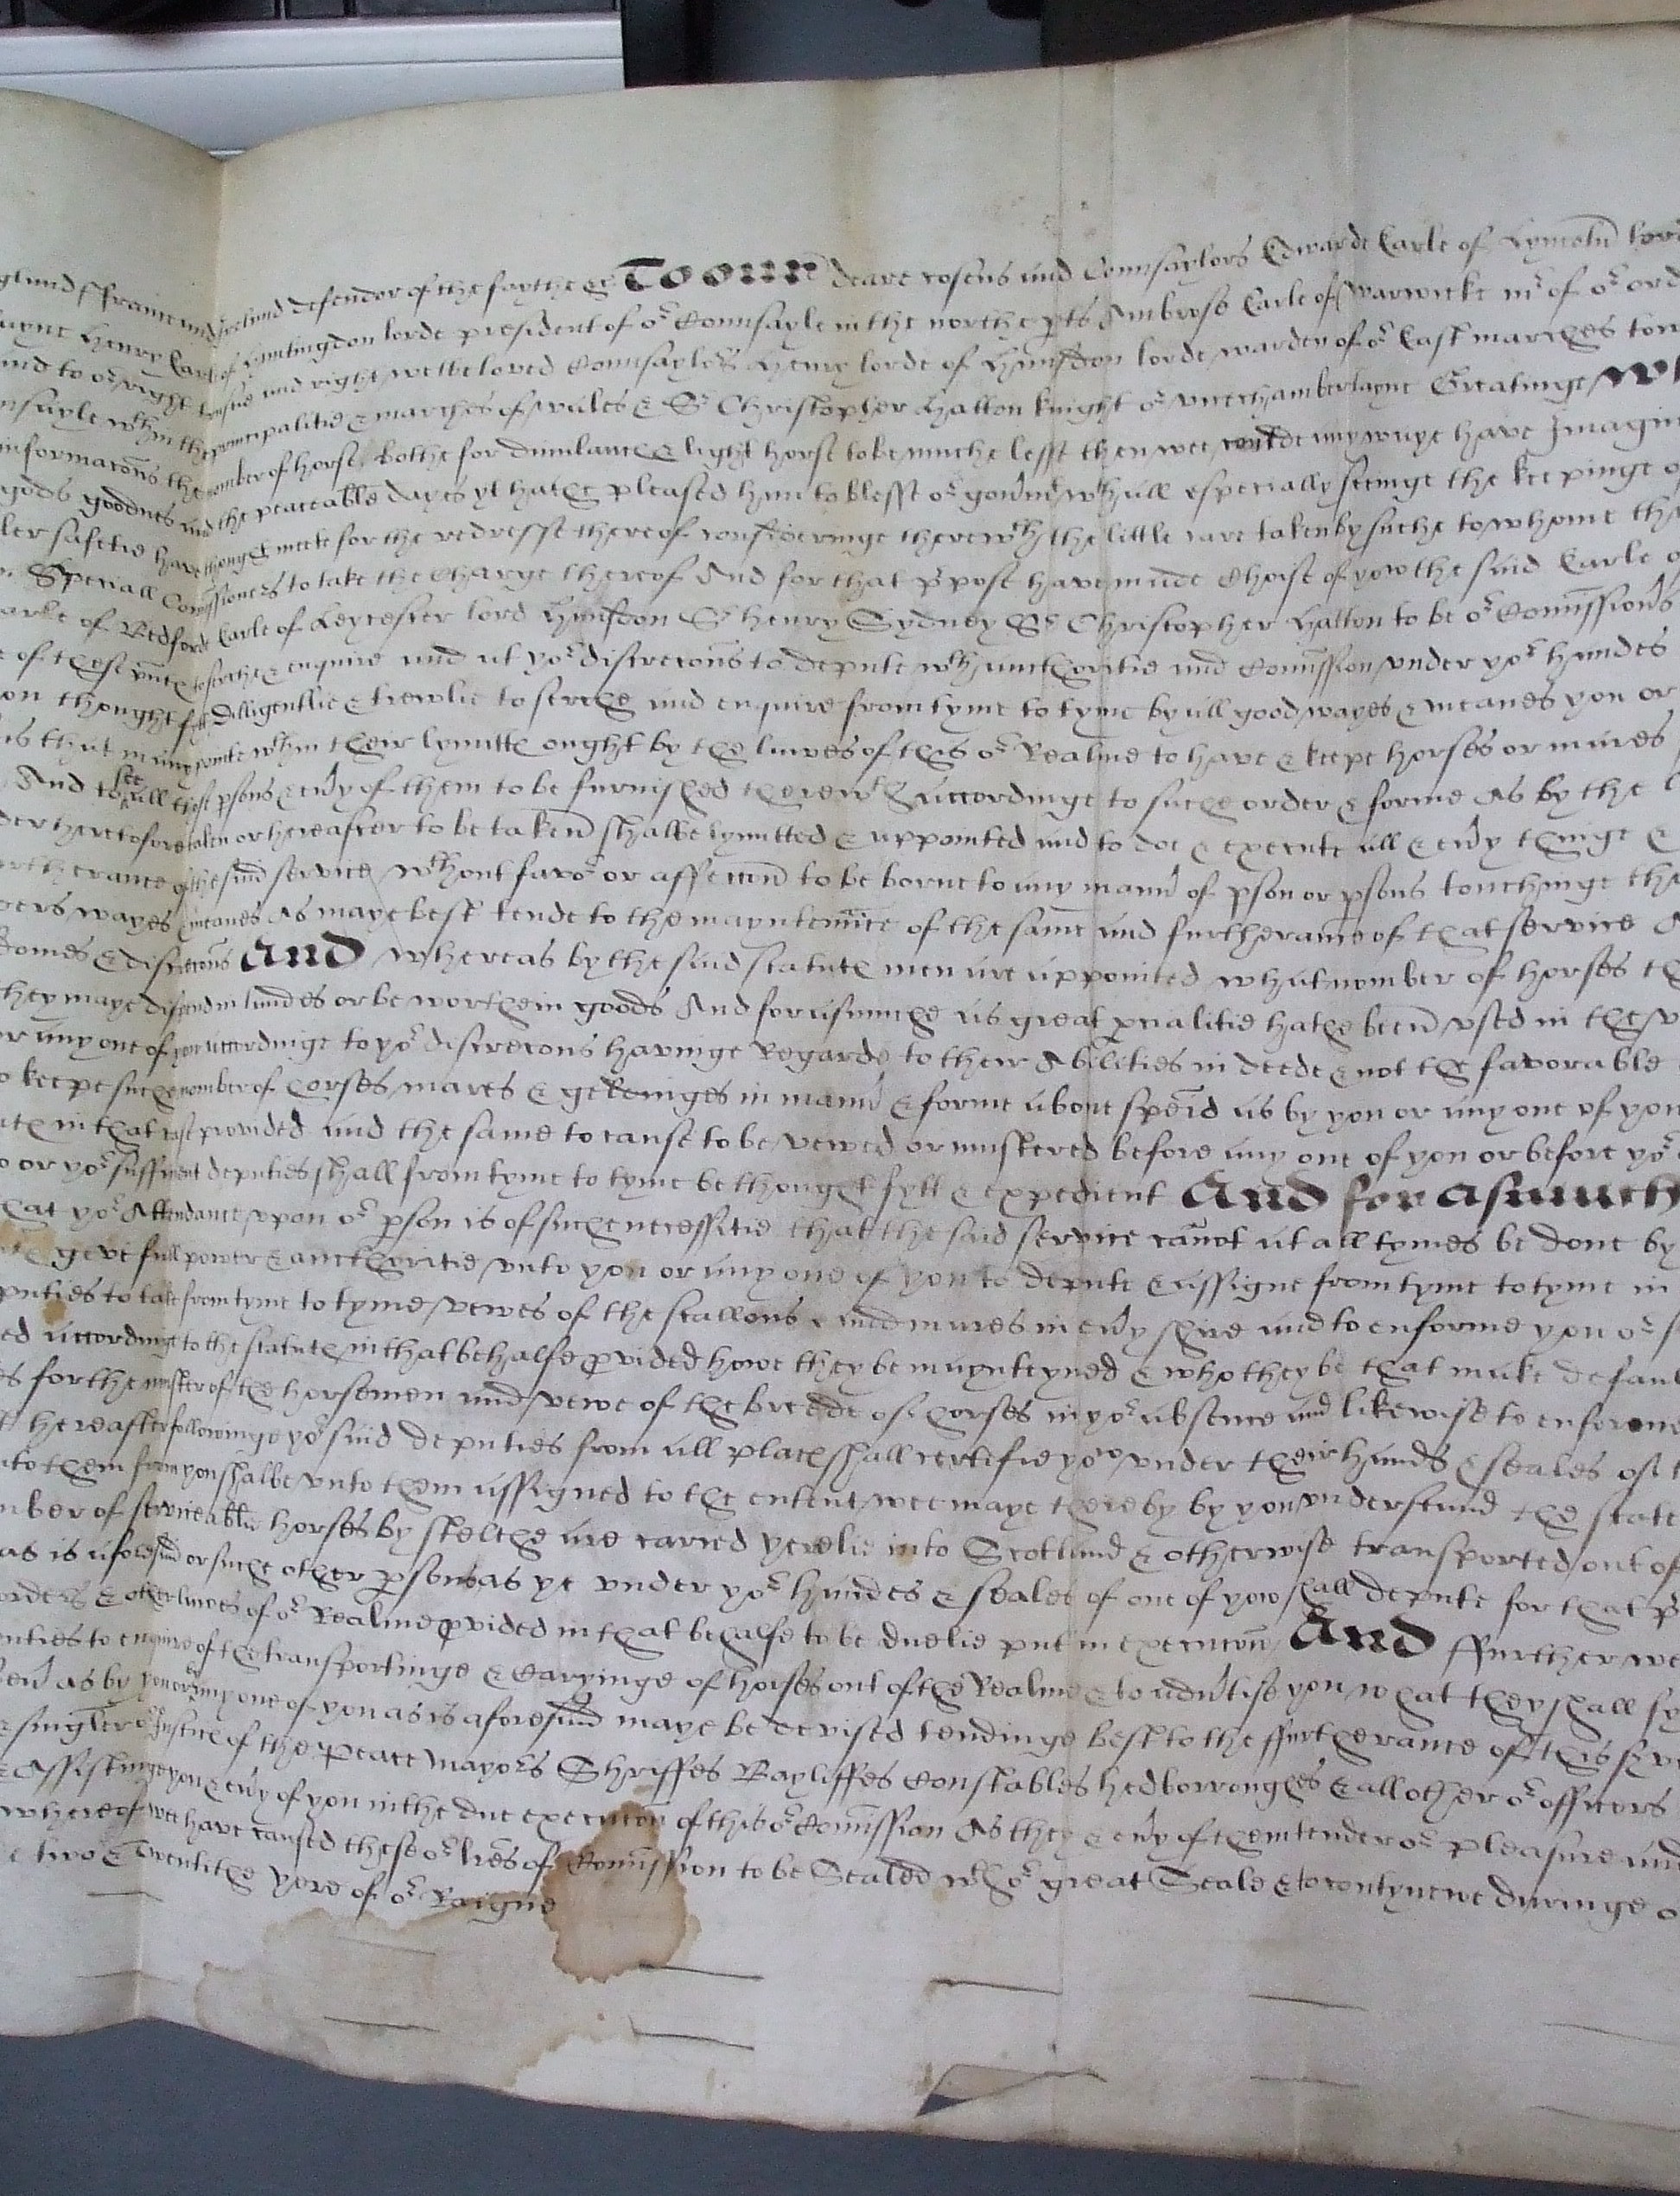 glaund ffraunce and Ireland defendor of the faythe &c To our deare cosens and Counsaylors Edwarde Earle of Lyncoln lord
layne Henry Earle of Huntingdon lorde president of or Counsayle in the northe pts Ambrose Earle of Warwicke mr of or ord
and to or right trustie and right welbeloved Counsaylers Henry lorde of Hunsdon lorde warden of or East marches tow
nsayle wthin the principalitie & marches of wales & Sr Christopher Hatton knight or vicechamberlayne Greatinge Wh
informacons the nomber of horse bothe for dimilaunce & light horse to be muche lesse then wee coulde any waye have Imagin
gods goodnes and the peaceable dayes yt hathe pleased him to blesse or govment wth all especially seinge the kepinge o
ler saftie have thought meete for the redresse thereof consideringe therewth the little care taken by suche to whome th
Speciall Comissioners to take the charge thereof And for that ppose have made Choise of yow the said Earle o
arle of Bedforde Earle of Leycester lord Hunsdon Sr Henry Sydney Sr Christopher Hatton to be or Comissioners
of these pnte to serche & enquire and at yor discrecons to depute wth aucthoritie and Comission under yor handes
on thought fytt Dilligentlie & trewlie to serche and enquire from tyme to tyme by all good wayes & meanes you or
is that in any pointe wthin their lymitte ought by the lawes of this or Realme to have & kepe horses or mares
And to see all those psons & evy of them to be furnished therewth accordinge to suche order & forme As by the
der heretofore taken or hereafter to be taken shalbe lymitted & appointed and to doe & execute all & evy thinge &
urtherance of the said service wthout favor or affeccon to be borne to any mann of pson or psons touchinge th
pers wayes & meanes As maye best tende to the mayntennce of the same and furtherance of that service A
domes & discrecons And whereas by the said statute men are appointed what nomber of horses th
they maye dispend in landes or be worthe in goods And forasmuche as great pcialitie hathe been used in the v
or any one of you accordinge to yor discrecons havinge Regarde to their Abilities in deede & not the favorable
o kepe suche nomber of horses mares & geldinges in mann & forme above specid as by you or any one of you
ute in that case provided and the same to cause to be vewed or mustered before any one of you or before yor
o or yor sufficient deputies shall from tyme to tyme be thought fytt & expedient And for asmuch
hat yor Attendance upon or pson is of suche necessitie that the said service cannot at all tymes be done by
geve full power & aucthoritie unto you or any one of you to depute & assigne from tyme to tyme in
puties to take from tyme to tyme vewes of the stallons & and mares in evy shire and to enforme you or s
ed accordinge to the statute in that behalfe pvided howe they be maynteyned & who they be that make defaul
es for the muster of the horsemen and vewe of the breede of horses in yor absence and likewise to enforme
t hereafter followinge yor said deputies from all place shall certifie you under their hands & seales of t
nto them from you shalbe unto them assigned to the entent wee maye thereby by you understand the state
mber of serviceable horses by stelthe are caried yerelie into Scotland & otherwise transported out of
as is aforesaid or suche other persons as ye under yor handes & seales of one of yow shall depute for that p
orders & other lawes of or Realme pvided in that behalfe to be duelie put in execucon And ffurther we
enties to enquire of the transportinge & Caryinge of horses out of the Realme & to advtise you what they shall fy
as by you or by any one of you as is aforesaid maye be devised tendinge best to the ffurtherance of this serv
& singler or Justice of the Peace Mayors Shriffes Bayliffes Constables hedborroughes & all other or officers
& Assistinge you & evy of you in the due execucon of this or Comission As they & evy of them tender or pleasure and
whereof wee have caused these or lres of Comission to be Sealed wth or great Seale & to contynewe duringe o
two & Twentithe yere of or Raigne